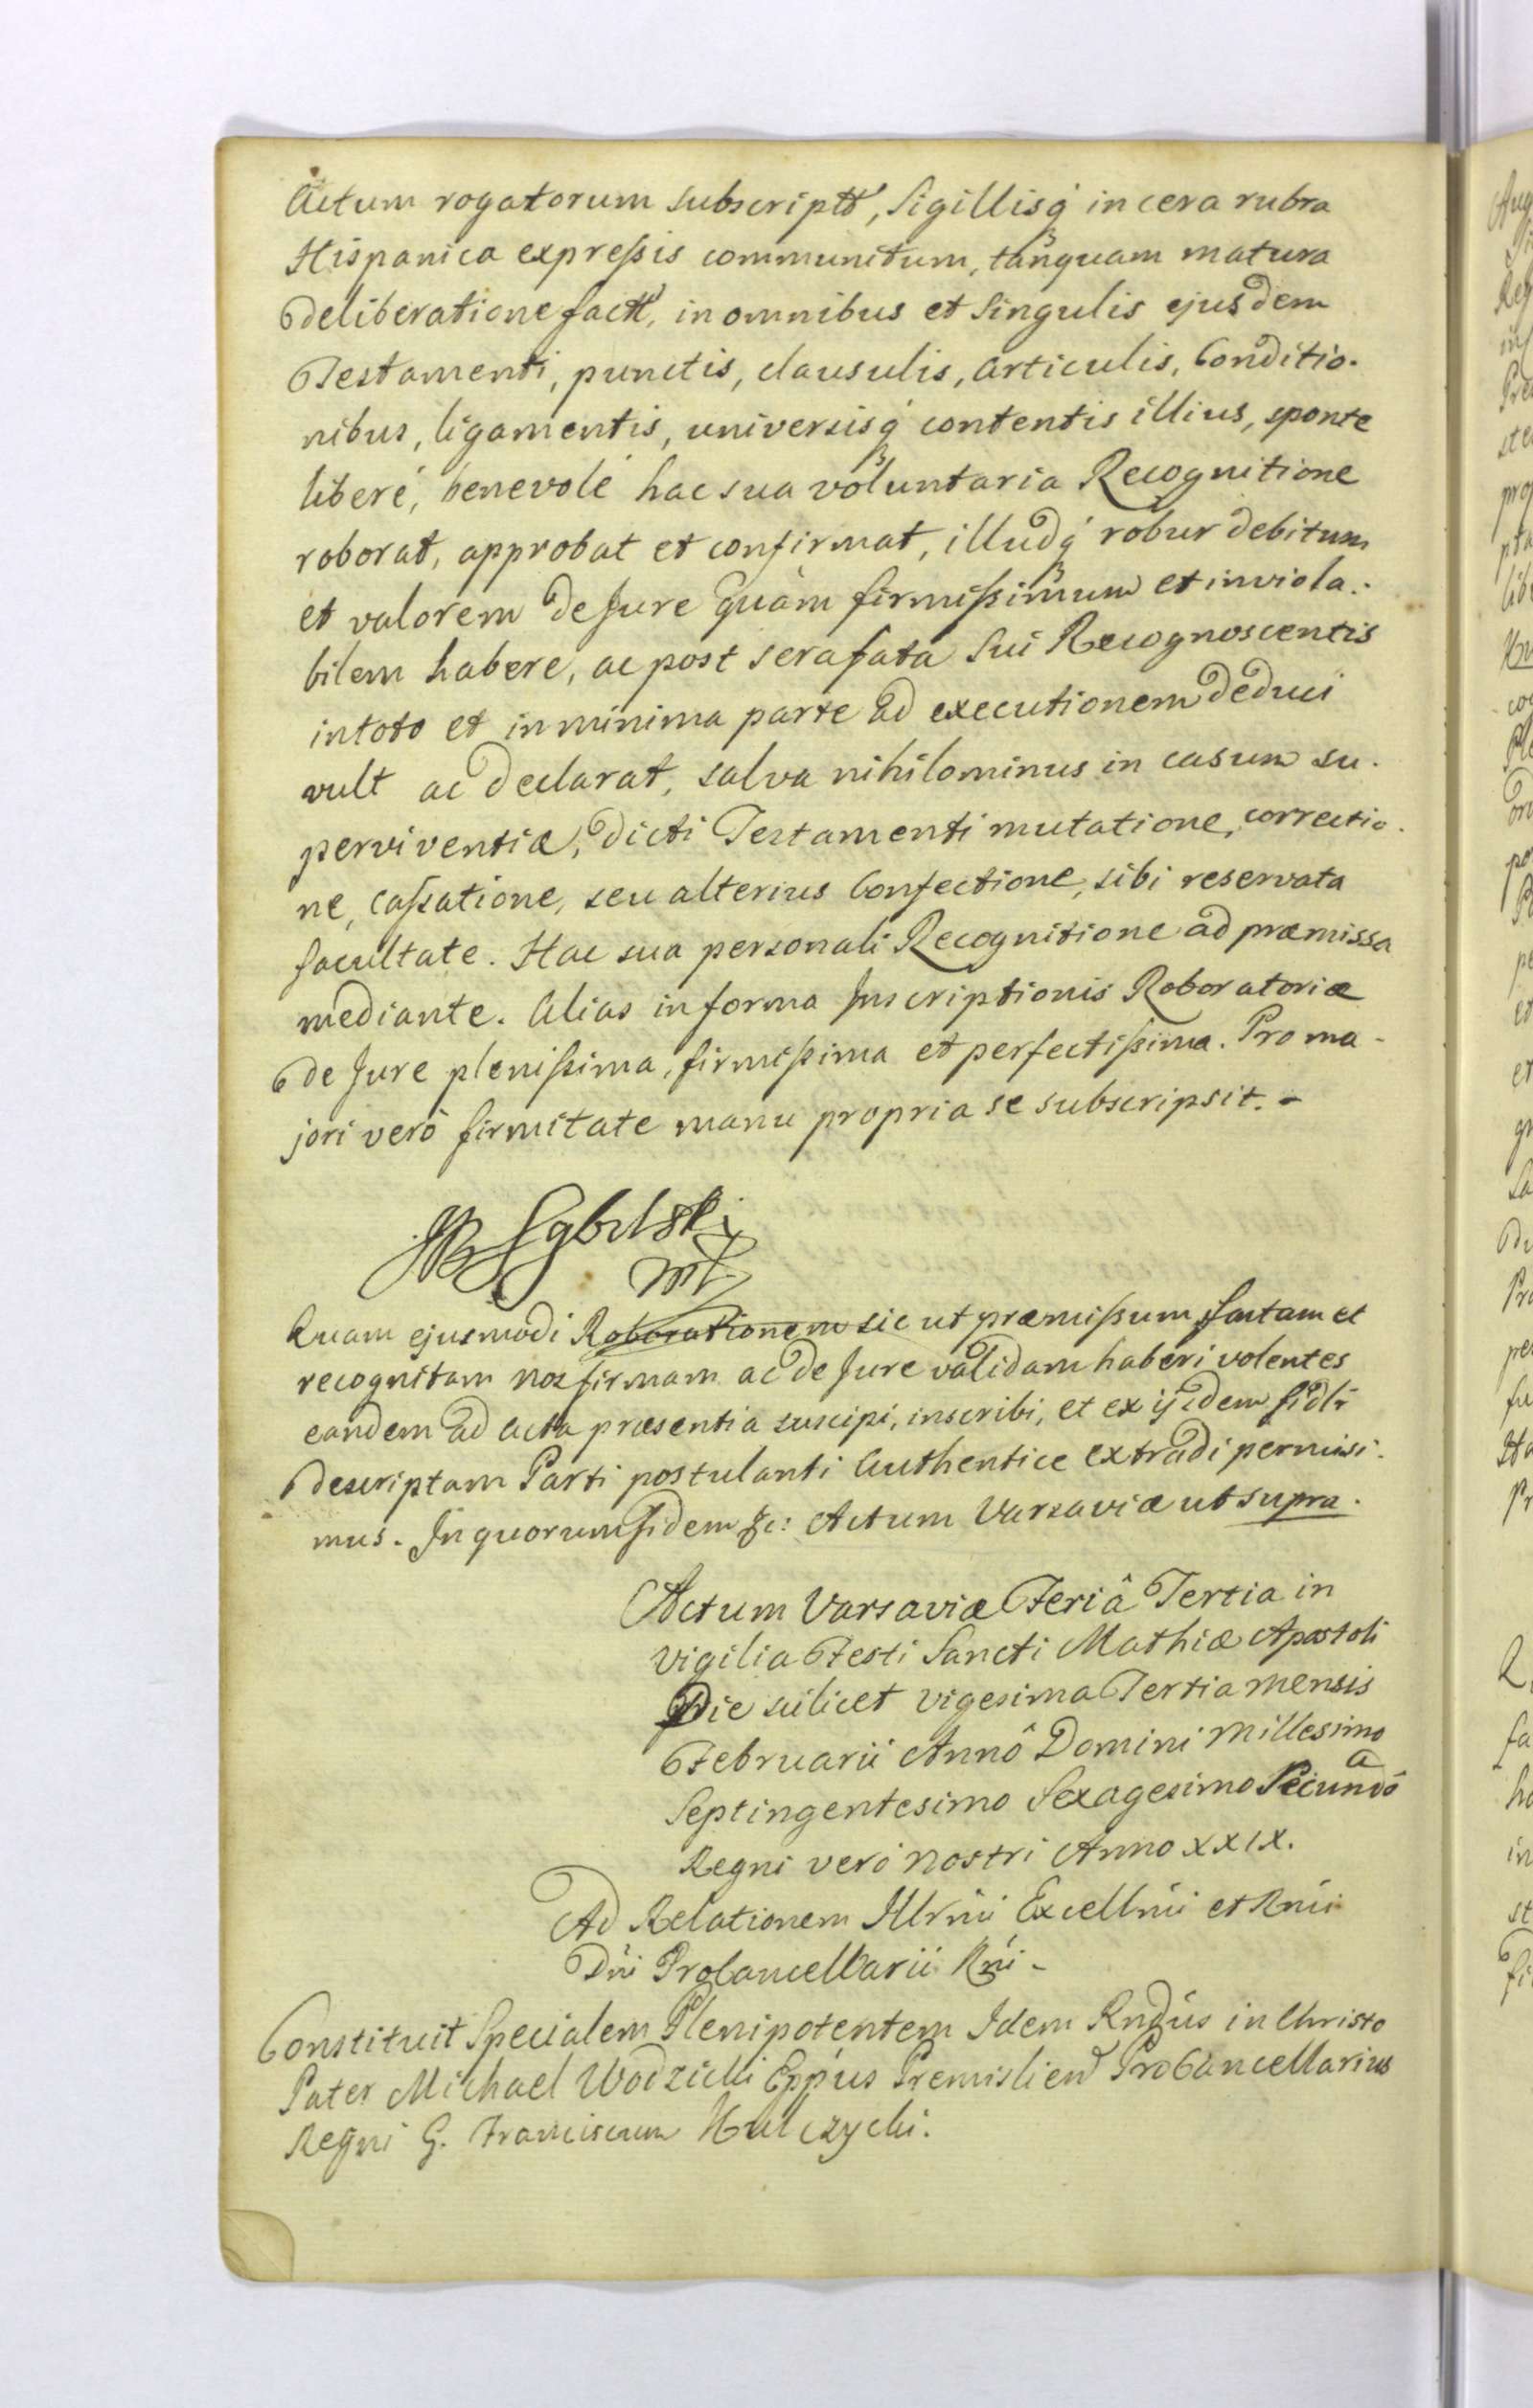 Actum rogatorum subscriptt, Sigillisq́ in cera rubra
Hispanica expreſsis communitum, tanquam matura
deliberatione factt, in omnibus et Singulis ejusdem
Testamenti, punctis, clausulis, articulis, Conditio-
nibus, ligamentis, universisq́ contentis illius, sponte
liberé, benevolé hac sua voluntaria Recognitione
roborat, approbat et confirmat, illudq́ robur debitum
et valorem de Jure quàm firmiſsimum et inviola-
bilem habere, ac post sera fata Sui Recognoscentis
in toto et in minima parte ad executionem deduci
vult ac declarat, salva nihilominus in casum su-
perviventiæ, dicti Testamenti mutatione, correctio-
ne, caſsatione, seu alterius Confectione, sibi reservata
facultate. Hac sua personali Recognitione ad præmissa
mediante. Alias in forma Inscriptionis Roboratoriæ
de Jure pleniſsima, firmiſsima et perfectiſsima. Pro ma-
jori verò firmitate manu propria se subscripsit. -
Quam ejusmodi Roborationem sic ut præmiſsum factam et
recognitam nos firmam ac de Jure validam haberi volentes
eandem ad acta præsentia suscipi, inscribi, et ex ijsdem fidlr
descriptam Parti postulanti Authentice extradi permisi-
mus. In quorum fidem &c: Actum Varsaviæ ut supra.
Actum Varsaviæ Feriâ Tertia in
Vigilia Festi Sancti Mathiæ Apostoli
Die scilicet vigesima Tertia mensis
Februarii Annô Domini Millesimo
Septingentesimo Sexagesimo Secundô
Regni veró nostri Anno XXIX.
Ad Relationem Illrmi Excellmi et Rmi
Dni ProCancellarii Rni -
Constituit Specialem Plenipotentem Idem Rndus in Christo
Pater Michael Wodzicki Eppus Premislien ProCancellarius
Regni G. Franciscum Hulczycki.